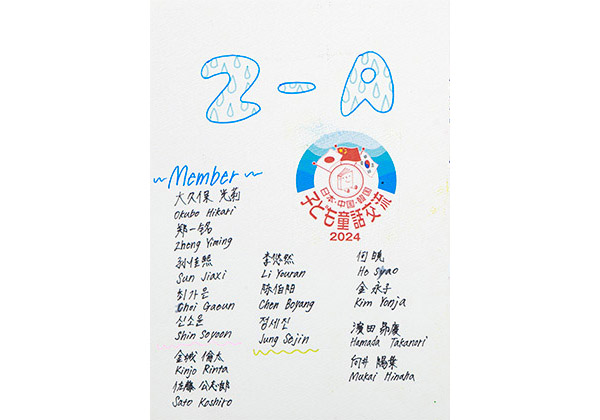 2-A
~Member~
日本・中国・韓国
子ども童話交流
2024
大久保 光莉
Okubo Hikari
郑一铭
Zheng Yiming
孙佳熙
Sun Jiaxi
최가은
Choi Gaeun
신소윤
Shin Soyoon
金城 倫太
Kinjo Rinta
佐藤 公志郎
Sato Koshiro
李悠然
Li Youran
陈伯阳
Chen Boyang
정세진
Jung Sejin
何晓
He
金 永子
Kim Yonja
濱田 昂慶
Hamada Takanori
向井 陽葉
Mukai Hinaha